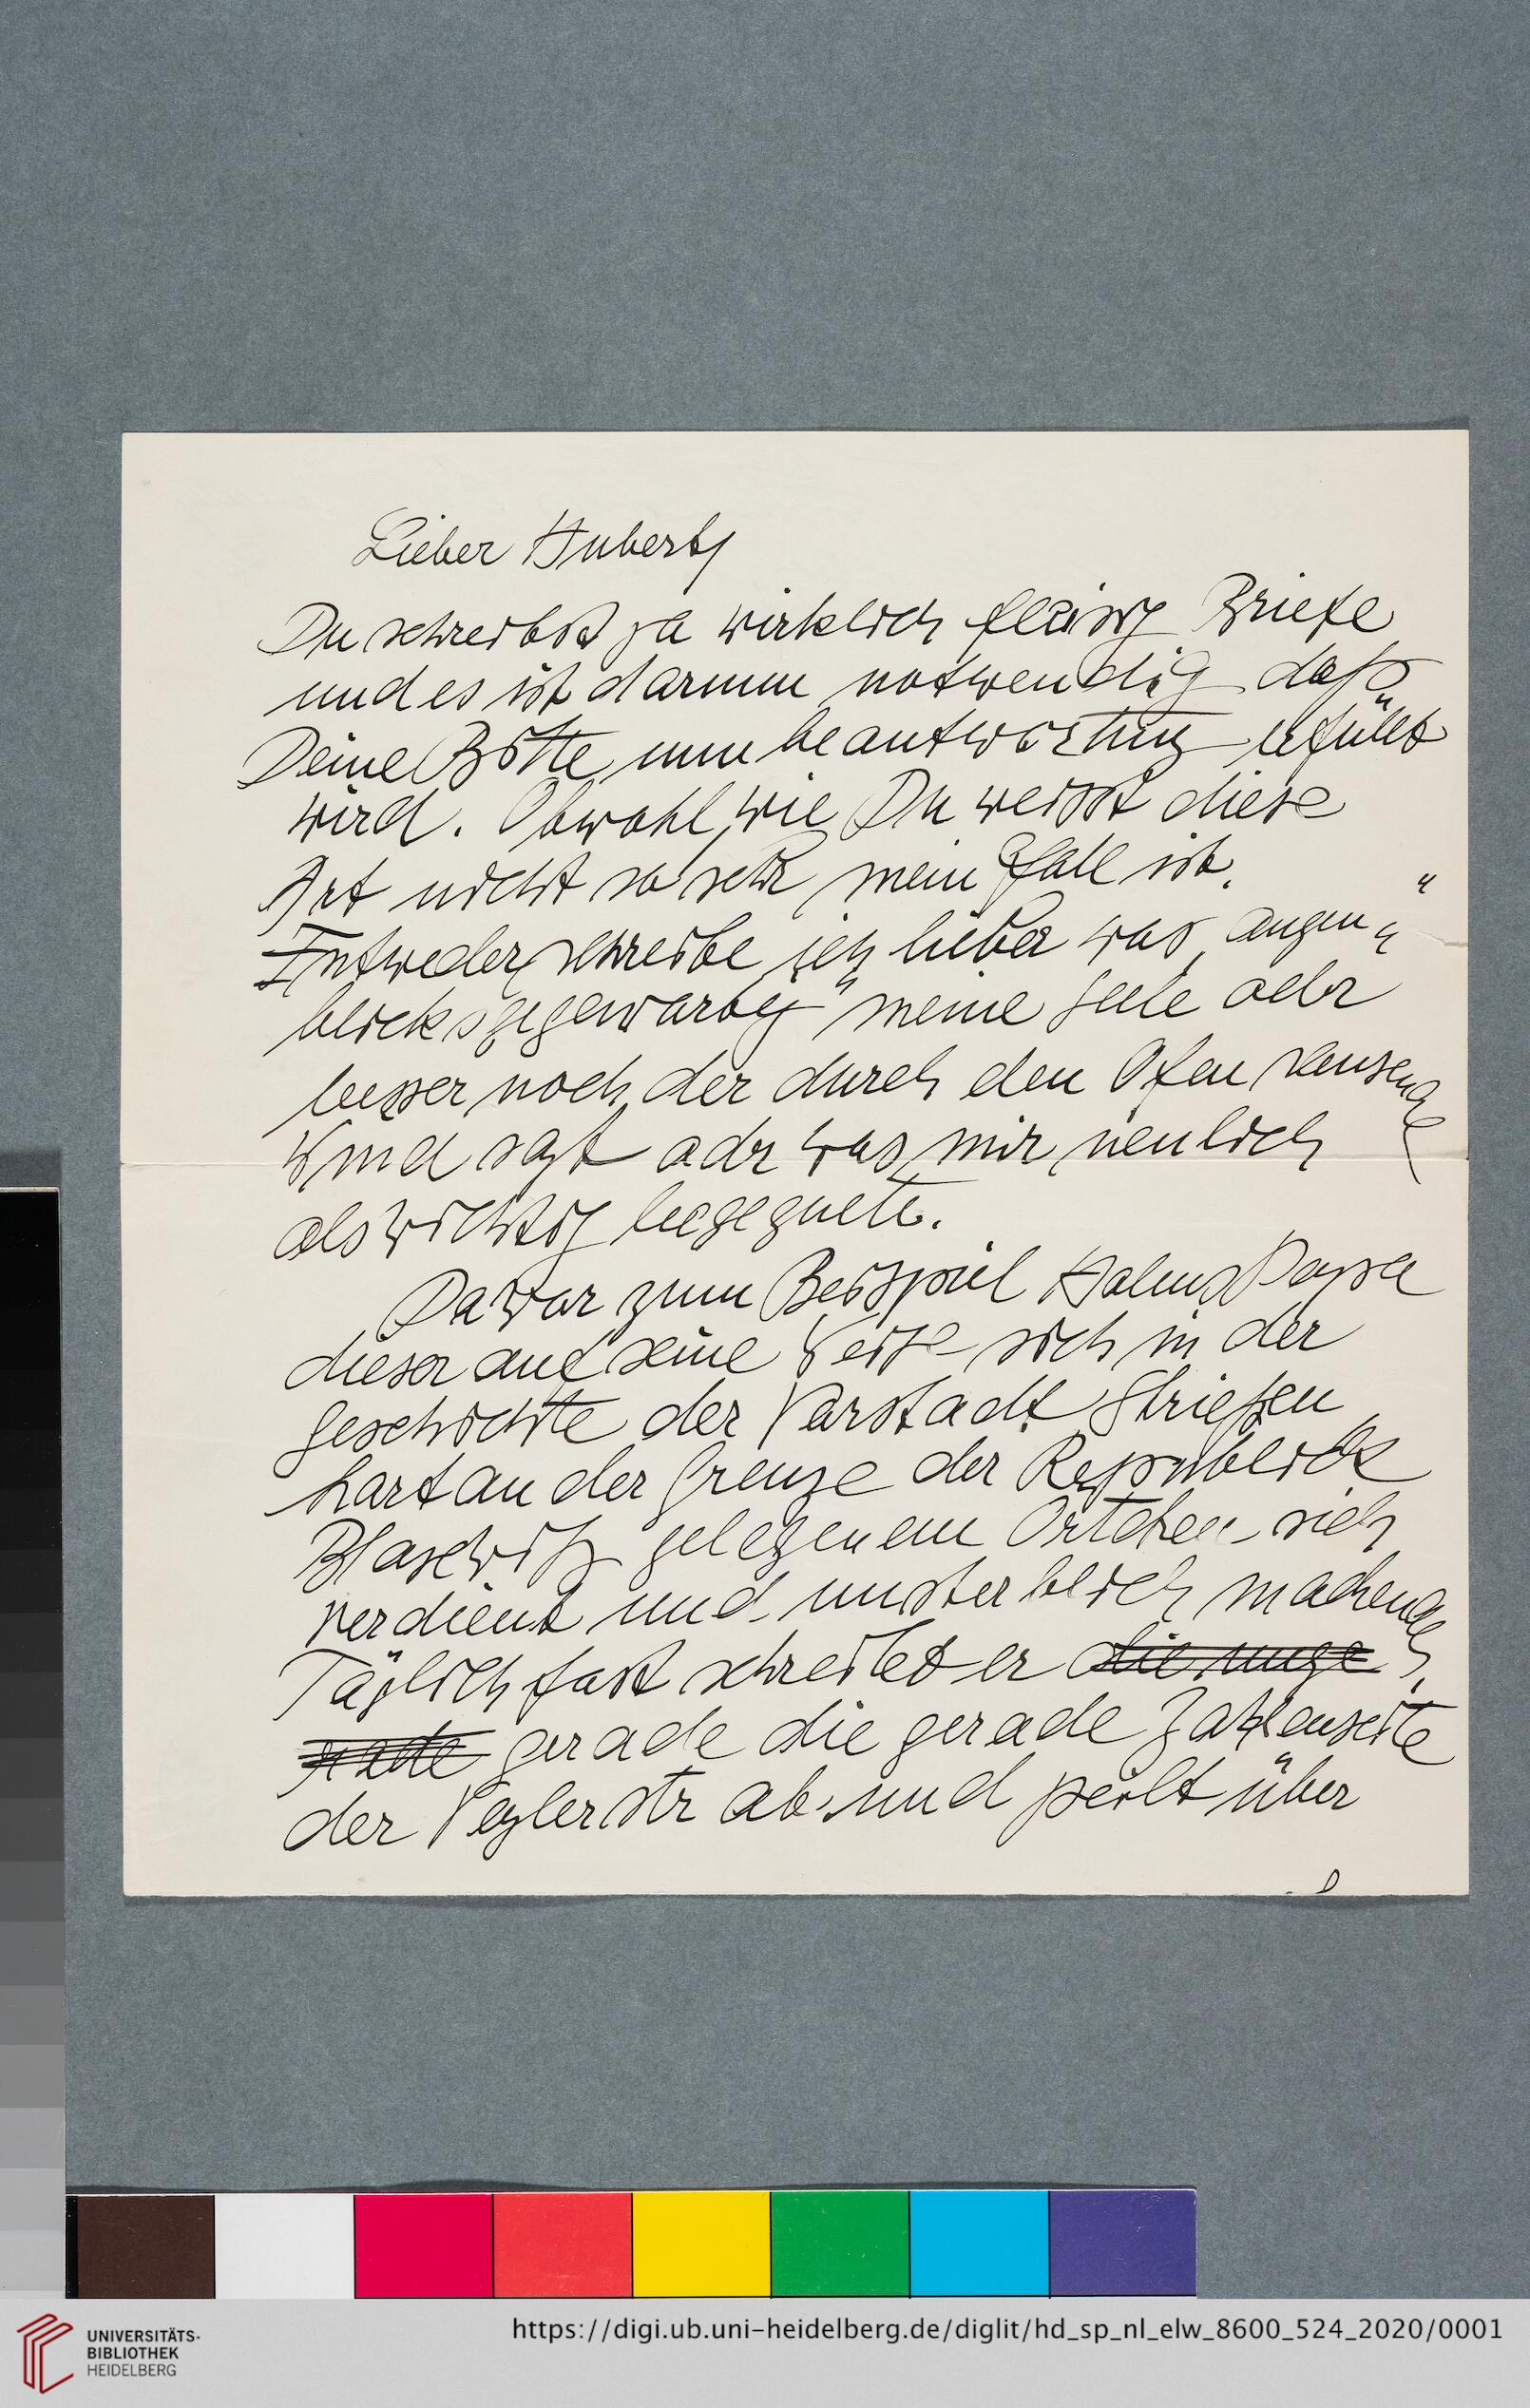 Lieber Hubert,
Du schreibst ja wirklich fleissig Briefe
und es ist darum notwendig daß
Deine Bitte um beantwortung erfüllt
wird. Obwohl, wie Du weisst diese
Art nicht so sehr mein Fall ist.
Entweder schreibe ich lieber was augen=
blicksgegenwärtig meine Seele oder
besser noch der durch den Ofen sausende
Wind sagt oder was mir neulich
als wichtig begegnete.
Da war zum Beispiel Papa
dieser auf seine Weise sich in der
Geschichte der Vorstadt Strießen
hart an der Grenze der Republick
Blasewitz gelegenem Örtchen sich
verdient und unsterblich machende,
Täglich fast schreitet er
gerade die gerade Zahlenseite
der Voglerstr ab und peilt über
UNIVERSITÄTS-
BIBLIOTHEK
HEIDELBERG
https://digi.ub.uni-heidelberg.de/diglit/hd_sp_nl_elw_8600_524_2020/0001